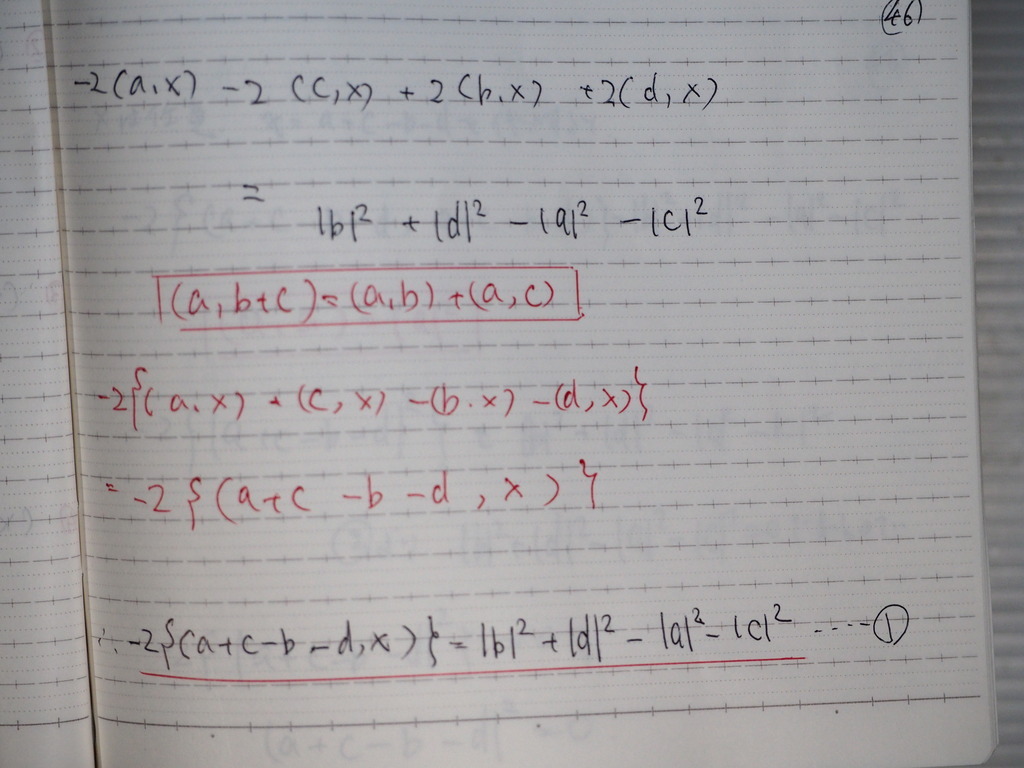 (46)
-2(a,x) -2(c,x) +2(b,x) +2(d,x)
=
|b|² + |d|² - |a|² - |c|²
(a,b+c)=(a,b)+(a,c)
-2{(a,x) + (c,x) -(b,x) -(d,x)}
= -2{(a+c -b -d, x)}
∴ -2{(a+c-b-d,x)} = |b|² + |d|² - |a|² - |c|² ----- ①